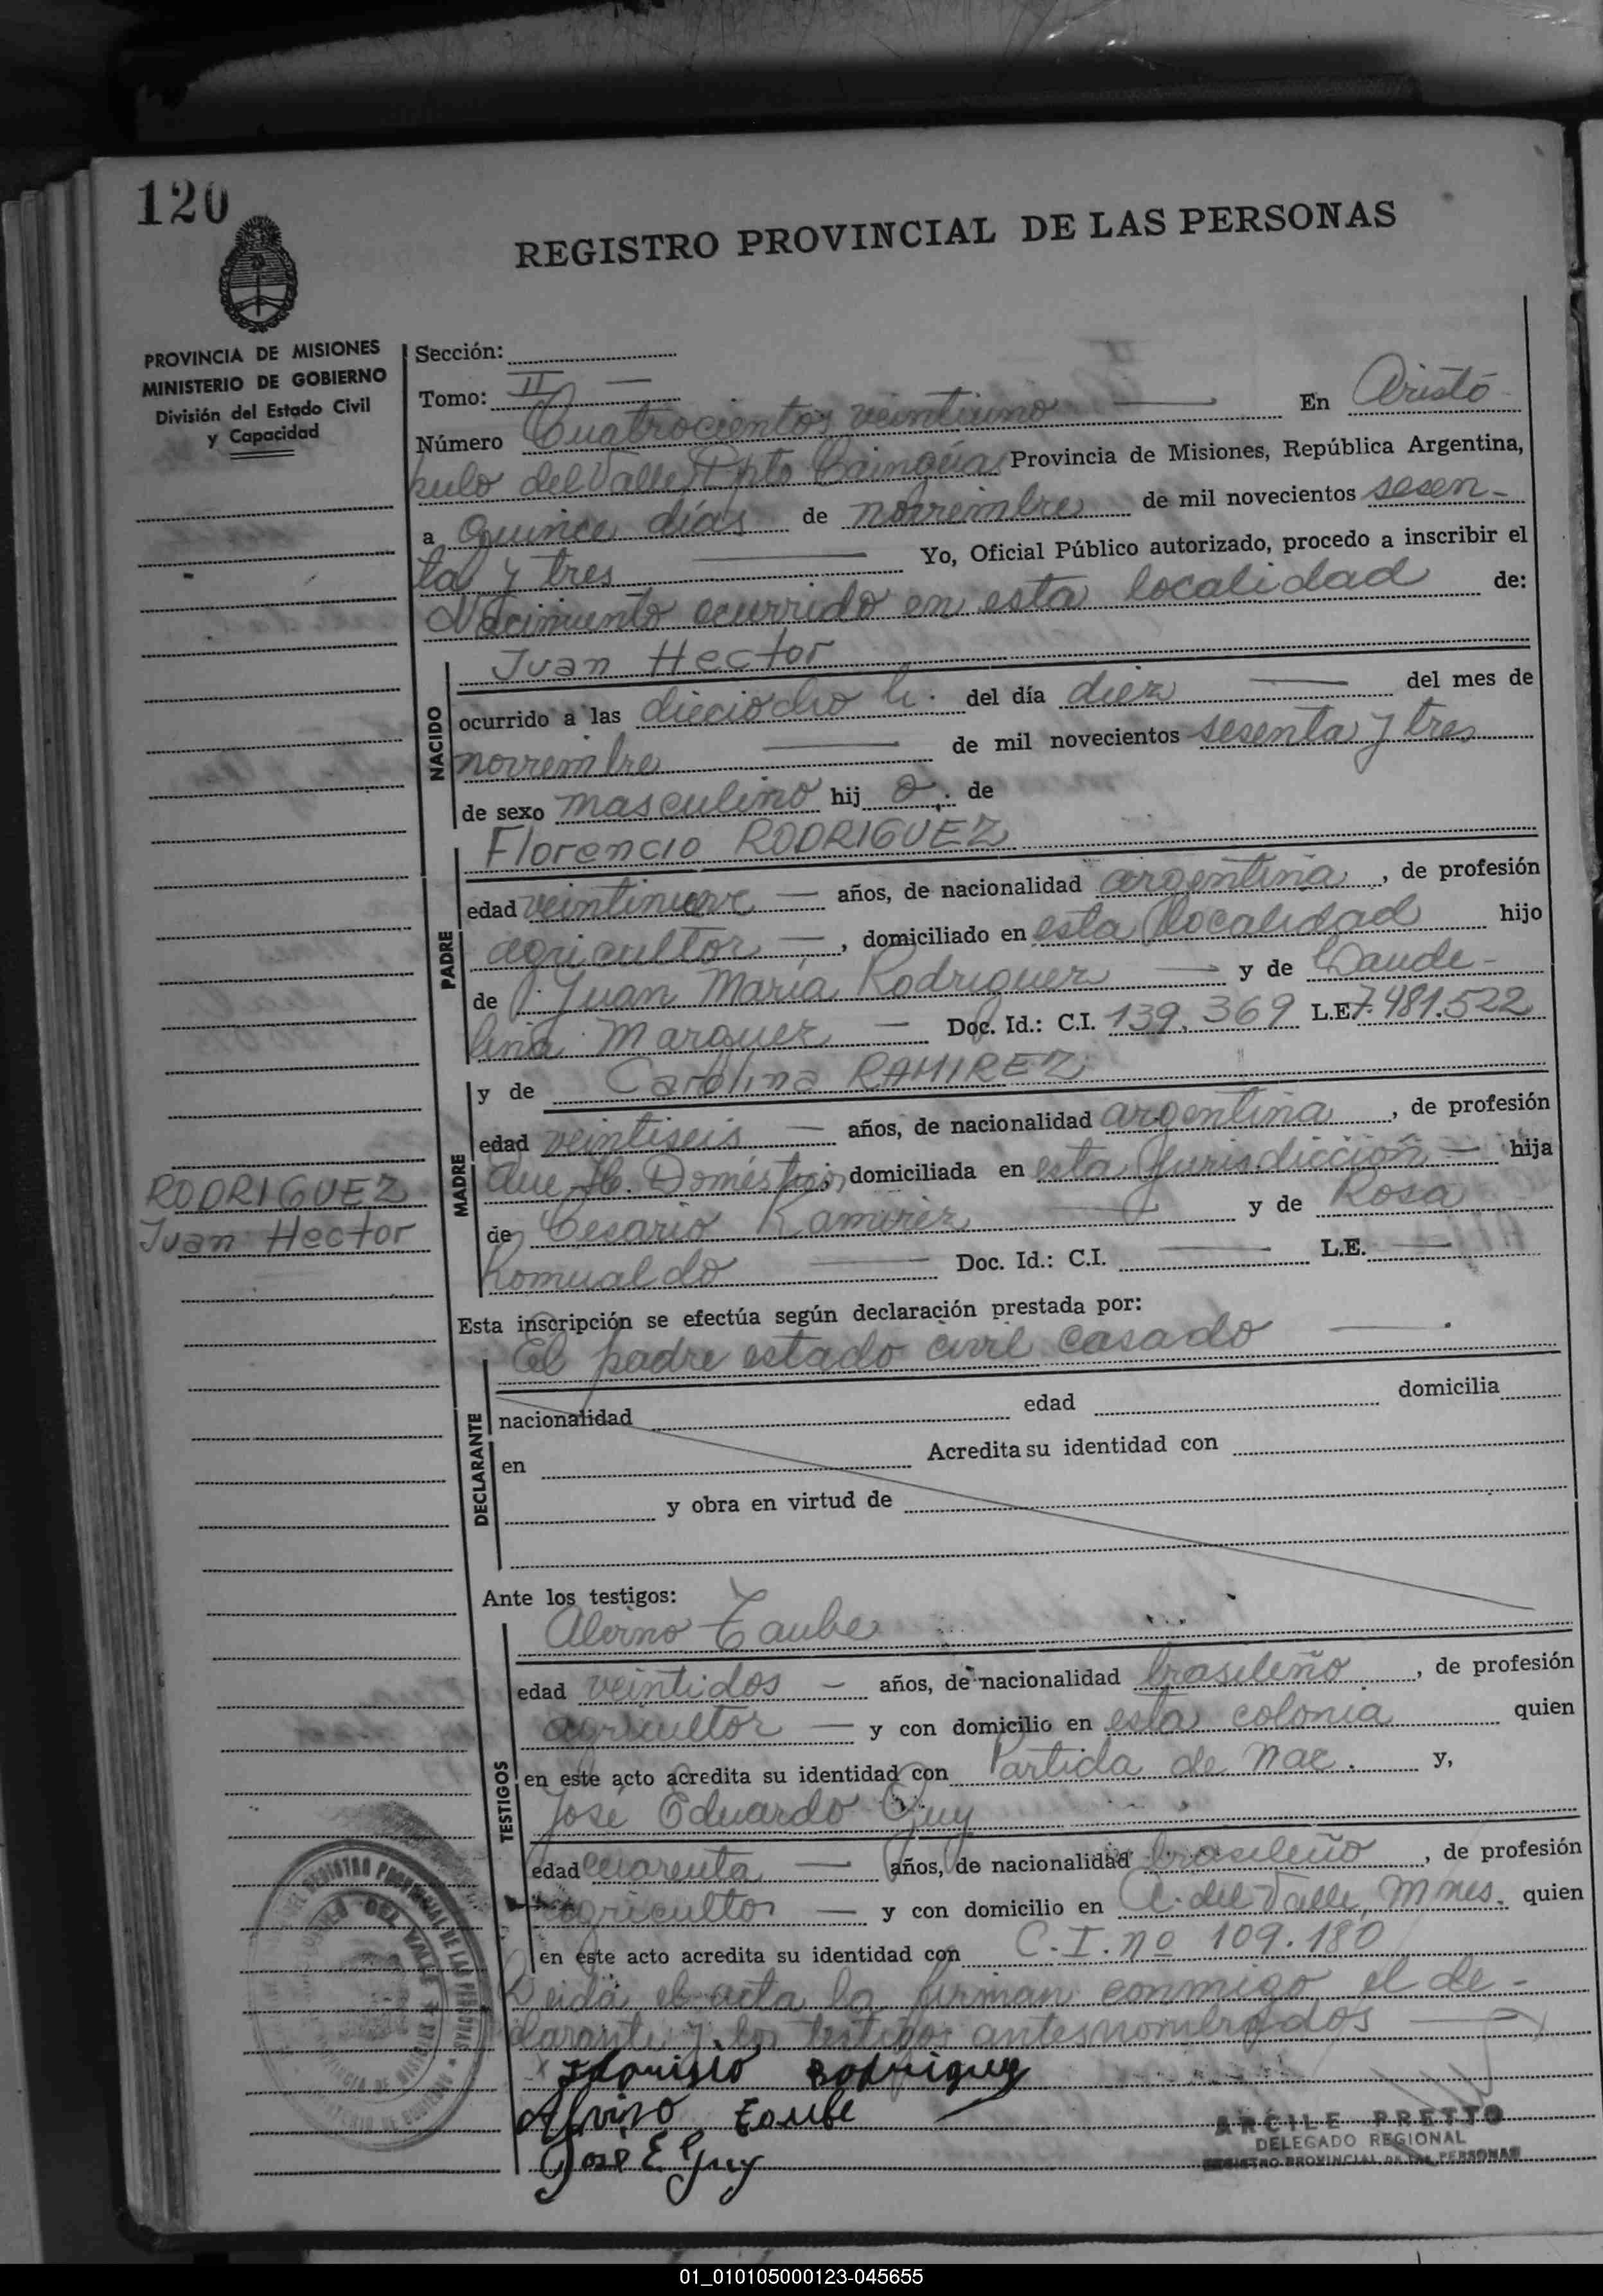 120
REGISTRO PROVINCIAL DE LAS PERSONAS
PROVINCIA DE MISIONES
MINISTERIO DE GOBIERNO
División del Estado Civil
y Capacidad
Sección:
Tomo: II —
Número Cuatrocientos veintiuno — En Aristó
bulo del Valle Dpto Cainguás Provincia de Misiones, República Argentina,
a quince días de noviembre de mil novecientos sesen-
ta y tres — Yo, Oficial Público autorizado, procedo a inscribir el
Nacimiento ocurrido en esta localidad de:
NACIDO
Juan Hector
ocurrido a las dieciocho h. del día diez — del mes de
noviembre — de mil novecientos sesenta y tres
de sexo masculino hij o. de
PADRE
Florencio RODRIGUEZ
edad veintinueve — años, de nacionalidad argentina, de profesión
agricultor —, domiciliado en esta localidad hijo
de Juan María Rodriguez — y de Claude-
lina Marquez — Doc. Id.: C.I. 139.369 L.E 7.481.522
MADRE
y de Carolina RAMIREZ
edad veintiseis — años, de nacionalidad argentina, de profesión
Que H. Domésticos, domiciliada en esta Jurisdicción — hija
de Cesario Ramirez — y de Rosa
Romualdo — Doc. Id.: C.I. — L.E. —
Esta inscripción se efectúa según declaración prestada por:
El padre estado civil casado —.
DECLARANTE
nacionalidad edad domicilia
en Acredita su identidad con
y obra en virtud de
RODRIGUEZ
Juan Hector
Ante los testigos:
TESTIGOS
Alvino Taube
edad veintidos — años, de nacionalidad brasileño, de profesión
agricultor — y con domicilio en esta colonia quien
en este acto acredita su identidad con Partida de Nac. y,
José Eduardo Guy
edad cuarenta — años, de nacionalidad brasileño, de profesión
agricultor — y con domicilio en A. del Valle, Mnes. quien
en este acto acredita su identidad con C.I. nº 109.180
Leída el acta la firman conmigo el de-
clarante y los testigos antesnombrados —
Rodriguez
Alvino Taube
José E Guy
ARCILE PRETTO
DELEGADO REGIONAL
REGISTRO PROVINCIAL DE LAS PERSONAS
01_010105000123-045655